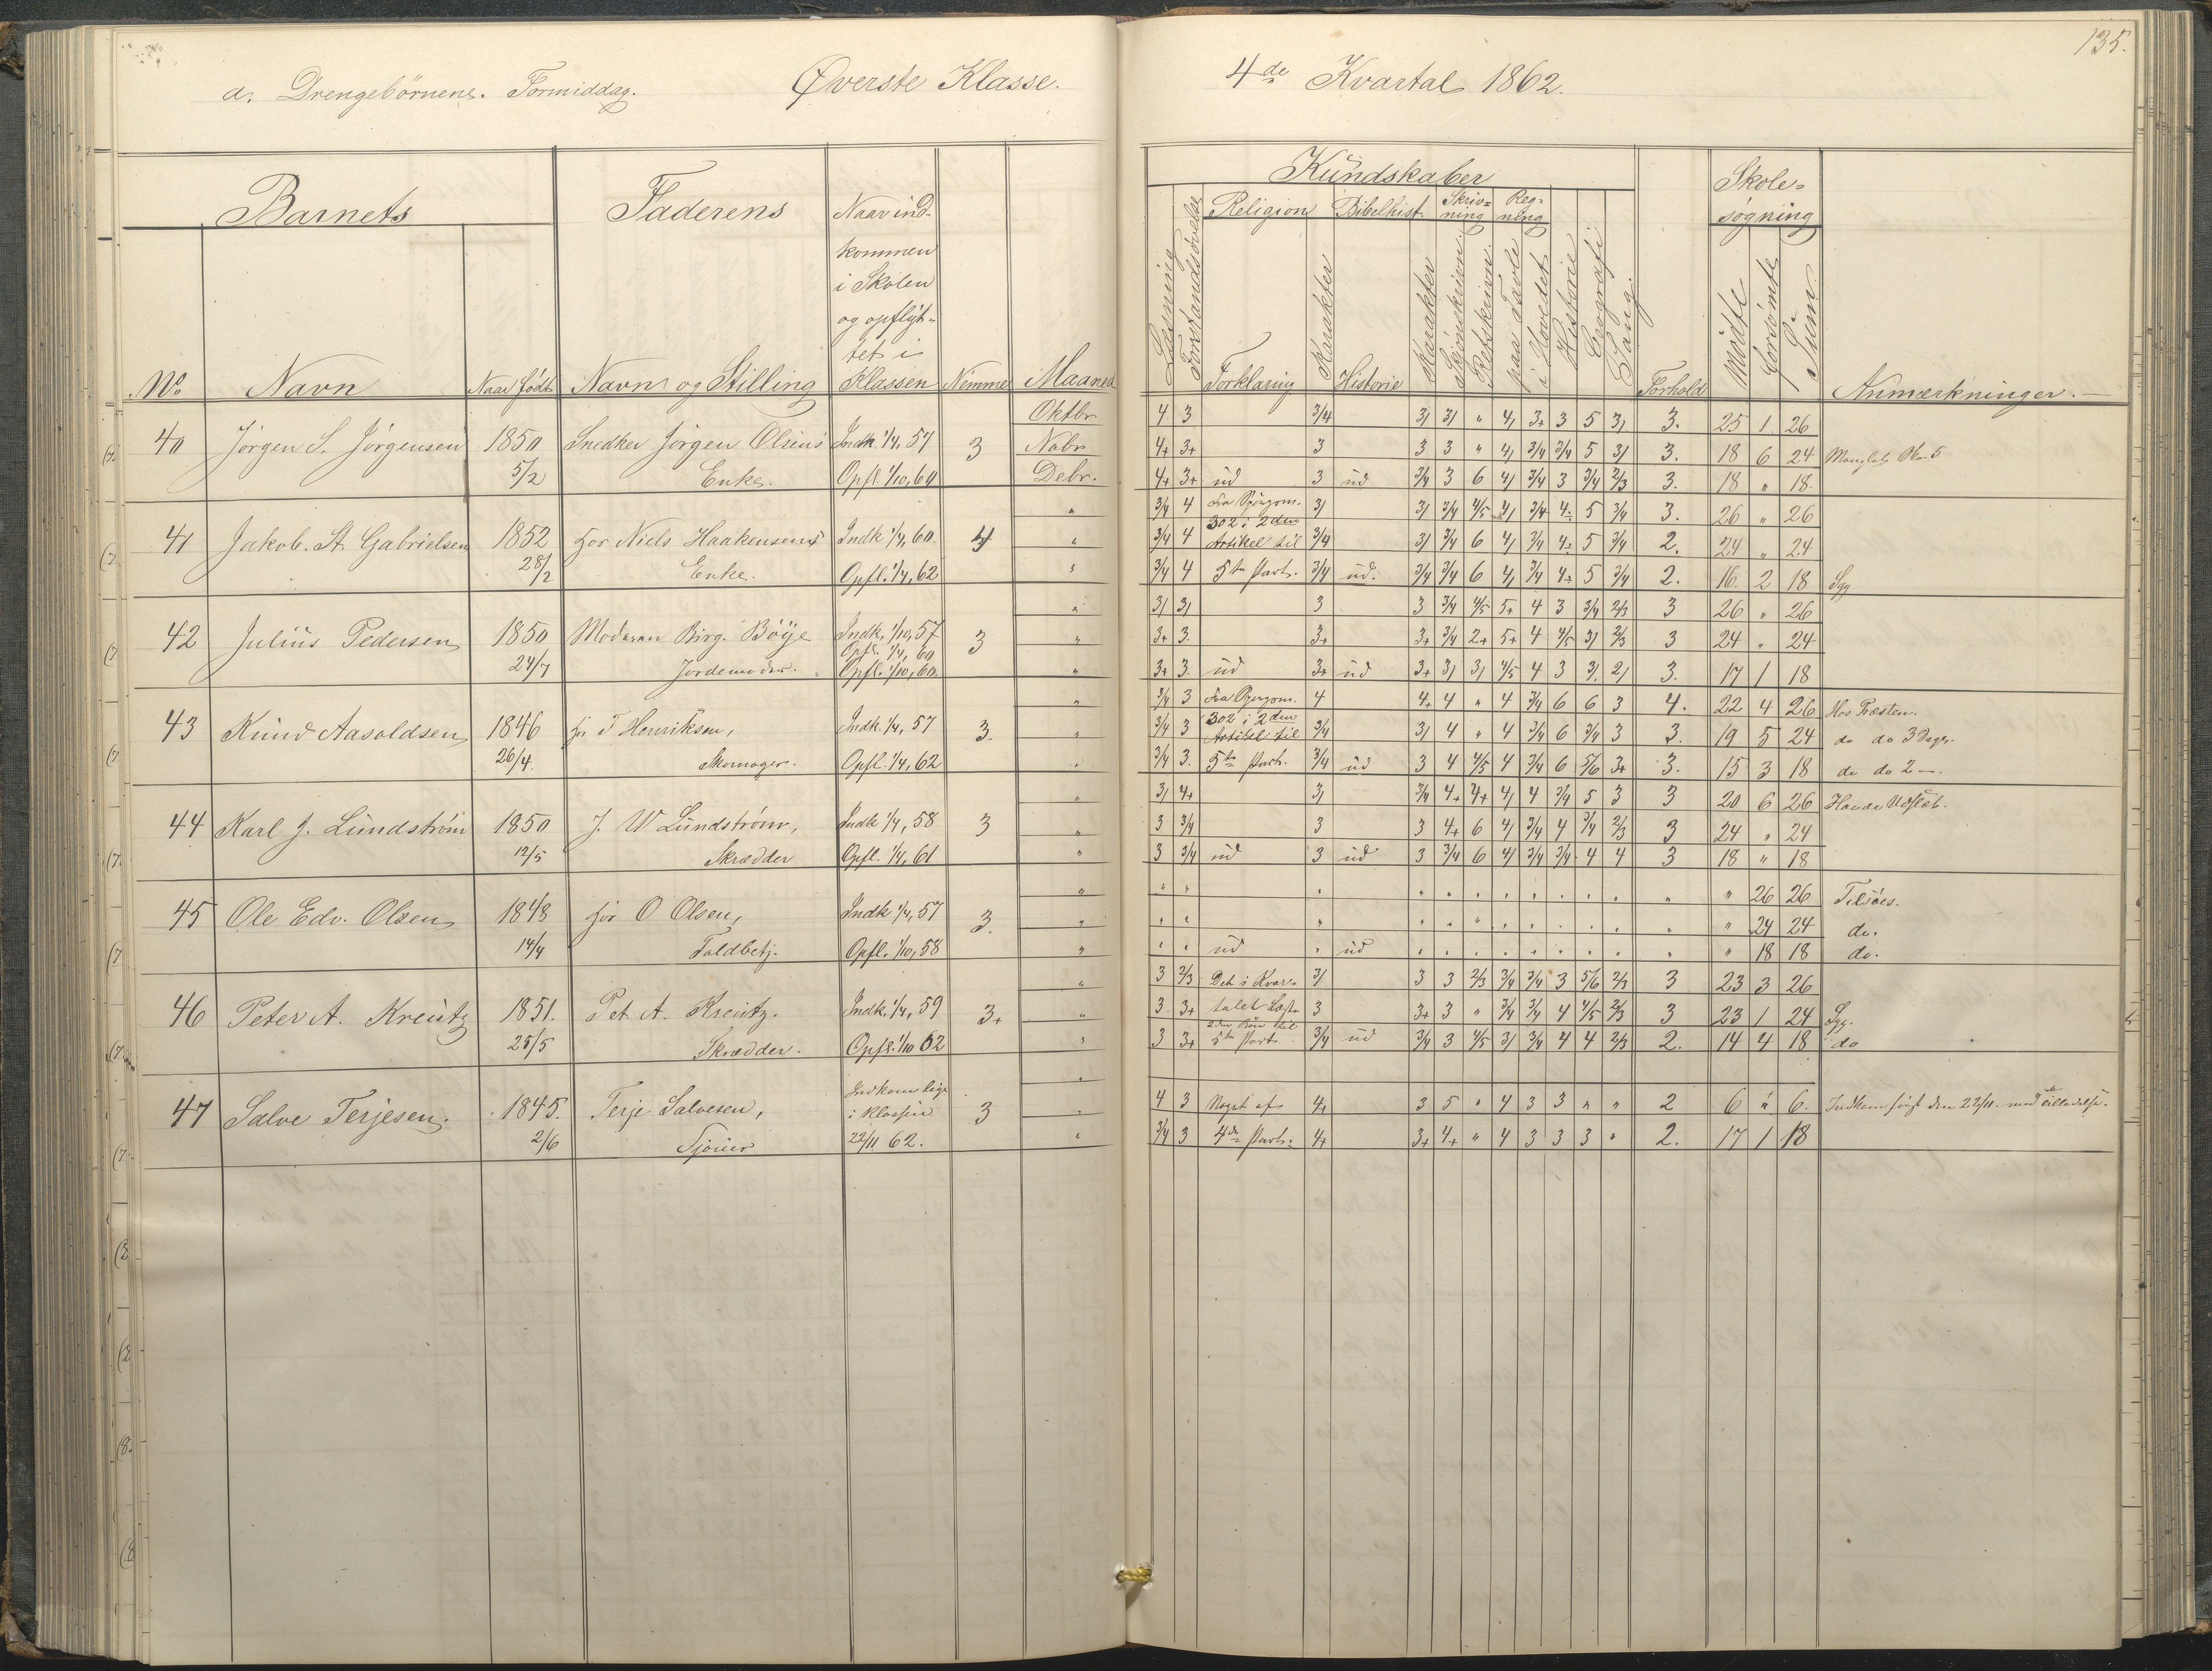 135.
a. Drengebörnene. Formiddag. Øverste Klasse. 4de Kvartal 1862.
Barnets Faderens Naar ind-
kommen
i Skolen
og opflyt-
tet i
No. Navn Naar født Navn og Stilling Klassen Nemme Maaned
Kundskaber Skole-
søgning
Religion Bibelhist. Skriv-
ning Reg-
ning
Læsning Forstandsøvelse Forklaring Karakter Historie Karakter Skjönskrivn. Retskrivn. paa Tavle i Hovedet Historie Geografi Sang. Forhold Mödte Forsömte Sum Anmærkninger.
Oktbr 4 3 3/4 3/ 3/ " 4/ 3+ 3 5 3/ 3. 25 1 26
40 Jörgen S. Jörgensen 1850 Snedker Jörgen Olsens Indk. 1/4, 57 3 Nobr 4+ 3+ 3 3 3 " 4/ 3/4 3/4 5 3/ 3. 18 6 24
5/2 Enke. Opfl. 1/10, 60 Debr. 4+ 3+ ud 3 ud 3/4 3 6 4/ 3/4 3 3/4 2/3 3. 18 " 18
" 3/4 4 3/ 3/ 3/4 4/5 4/ 3/4 4+ 5 3/4 3. 26 " 26
41 Jakob. St. Gabrielsen 1852 Niels Haakensens Indk 1/4, 60. 4 " 302 i 2den
3/4 4 Artikel til 3/4 3/ 3/4 6 4/ 3/4 4+ 5 3/4 2. 24 " 24
28/2 Enke. Opfl. 1/4, 62 " 3/4 4 5te Part. 3/4 ud. 3/4 3/4 6 4/ 3/4 4+ 5 3/4 2. 16 2 18 Syg
" 3/ 3/ 3 3 3/4 4/5 5+ 4 3 3/4 2/3 3 26 " 26
42 Julius Pedersen 1850 Moderen Birg. Böÿe Indk. 1/10, 57 3 " 3+ 3. 3+ 3+ 3/4 2+ 5+ 4 4/5 3/ 2/3 3 24 " 24
Opfl. 1/4, 60
24/7 Jordemoder. Opfl. 1/10, 60. " 3+ 3. ud 3+ ud 3+ 3/ 3/ 4/5 4 3 3/ 2/ 3. 17 1 18
" 3/4 3 4 4+ 4 " 4 3/4 6 6 3 4. 22 4 26 Hos Præsten.
43 Knud Aasoldsen 1846 T Henriksen, Indk. 1/4, 57 3. " 302 i 2den
3/4 3 Artikel til 3/4 3/ 4 " 4 3/4 6 3/4 3 3. 19 5 24 do do 3 Dage.
26/4. Skomager. Opfl. 1/4, 62 " 3/4 3. 5te Part. 3/4 ud 3 4 4/5 4 3/4 6 5/6 3+ 3. 15 3 18 do do 2 —.
" 3/ 4+ 3/ 3/4 4+ 4+ 4/ 4 3/4 5 3 3 20 6 26 Havde
44 Karl J. Lundström 1850 J. W Lundström, Indk 1/4, 58 3 " 3 3/4 3 3 4+ 6 4/ 3/4 4 3/4 2/3 3 24 " 24
12/5 Skrædder Opfl. 1/4, 61 " 3 3/4 ud 3 ud 3 3/4 6 4/ 3/4 3/4 4 4 3 18 " 18
" " " " " " " " " " " " " " " 26 26 Tilsöes.
45 Ole Edv. Olsen 1848 O Olsen, Indk 1/4, 57 3. " " " " " " " " " " " " " " " 24 24 do.
14/4 Toldbetj. Opfl. 1/10, 58 " " " ud " ud " " " " " " " " " " 18 18 do.
" 3 2/3 Det i Kvar- 3/ 3 3 2/3 3/4 3/4 3 5/6 2/3 3 23 3 26
46 Peter A. Kreutz 1851. Pet A. Kreutz. Indk. 1/4, 59 3+ " 3 3+ talet 3 3+ 3 " 3/4 3/4 4 4/5 2/3 3 23 1 24 Syg.
25/5 Skrædder. Opfl. 1/10 62 " 3 3+ 5te Part. 3/4 ud 3/4 3 4/5 3/ 3/4 4 4 2/3 2. 14 4 18 do
Indkom lige "
47 Salve Terjesen. 1845. Terje Salvesen, i Klassen 3 " 4 3 Noget af 4+ 3 5 " 4 3 3 " " 2 6 " 6. Indkom först den 22/11. med tilladelse.
2/6 Sjöur 22/11 62. " 3/4 3 4de Part. 4+ 3+ 4+ " 4 3 3 3 " 2. 17 1 18